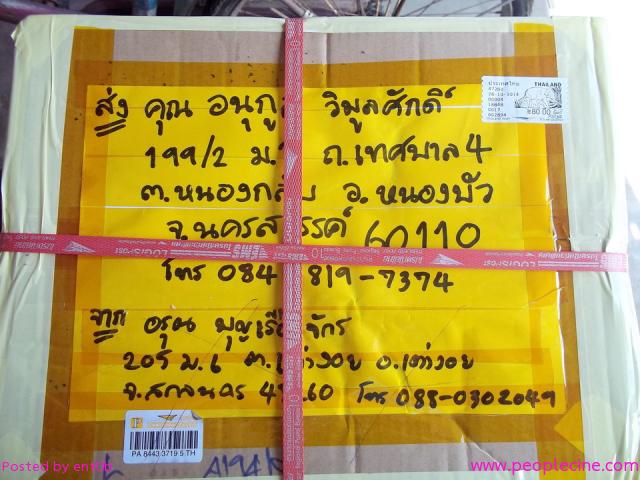 ส่ง คุณ อนุกูล วิมูลศักดิ์
199/2 ม. ถ.เทศบาล 4
ต.หนองกลับ อ.หนองบัว
จ.นครสวรรค์ 60110
โทร 084 819-7374
จาก อรุณ บุญเรือ จักร
205 ม.6 ต.เต่างอย อ.เต่างอย
จ.สกลนคร 47260 โทร 088-0302049
ประเทศไทย THAILAND
47260
฿80.00
LOGISPOST
EMS
PA 8443 3719 5 TH
A194
Posted by entob
www.peoplecine.com